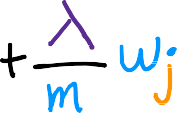 + λ/m wⱼ